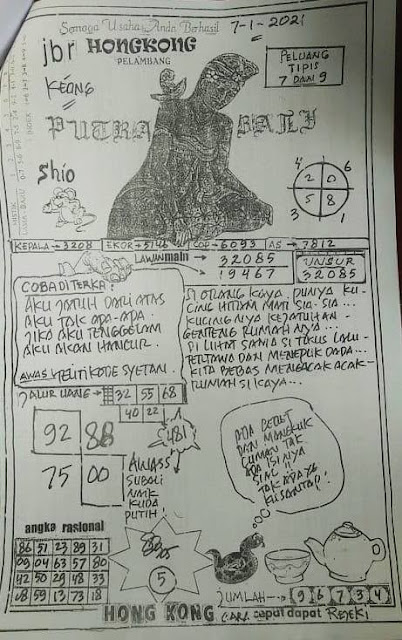 Semoga Usaha Anda Berhasil
7-1-2021
jbr HONGKONG
PELAMBANG
PELUANG
TIPIS
7 DAN 9
KEONG
PUTRA BALI
Shio
4 6
2 0
5 8
3 1
KEPALA → 3208 EKOR → 5146 COP → 6093 AS → 7812
LAWAN main → 32085
19467
UNSUR
32085
COBA DI TERKA:
AKU JATUH DARI ATAS
AKU TAK APA-APA
JIKA AKU TENGGELAM
AKU AKAN HANCUR.
AWAS TELITI KODE SYETAN.
SI ORANG KAYA PUNYA KU-
CING HITAM MATI SIA-SIA...
KUCING NYA KEJATUHAN-
GENTENG RUMAH NYA...
DI LIHAT SAMA SI TIKUS LALU-
TERTAWA DAN MENEPUK DADA...
KITA BEBAS MENGACAK ACAK-
RUMAH SI KAYA...
JALUR UANG → 32 55 68
40 22
481
92 88
75 00
AWASS
SUBALI
NAIK
KUDA
PUTIH!
ADA BEBEK
DAN MANGKUK
CUMAN TAK
ADA ISINYA
SIAL!!
TAK APA YG
KUSANTAP!
angka rasional
86 51 23 89 31
09 04 63 57 80
42 50 29 48 33
08 59 13 73 18
5
JUMLAH → 9 6 7 3 4
HONG KONG CARA cepat dapat REJEKI